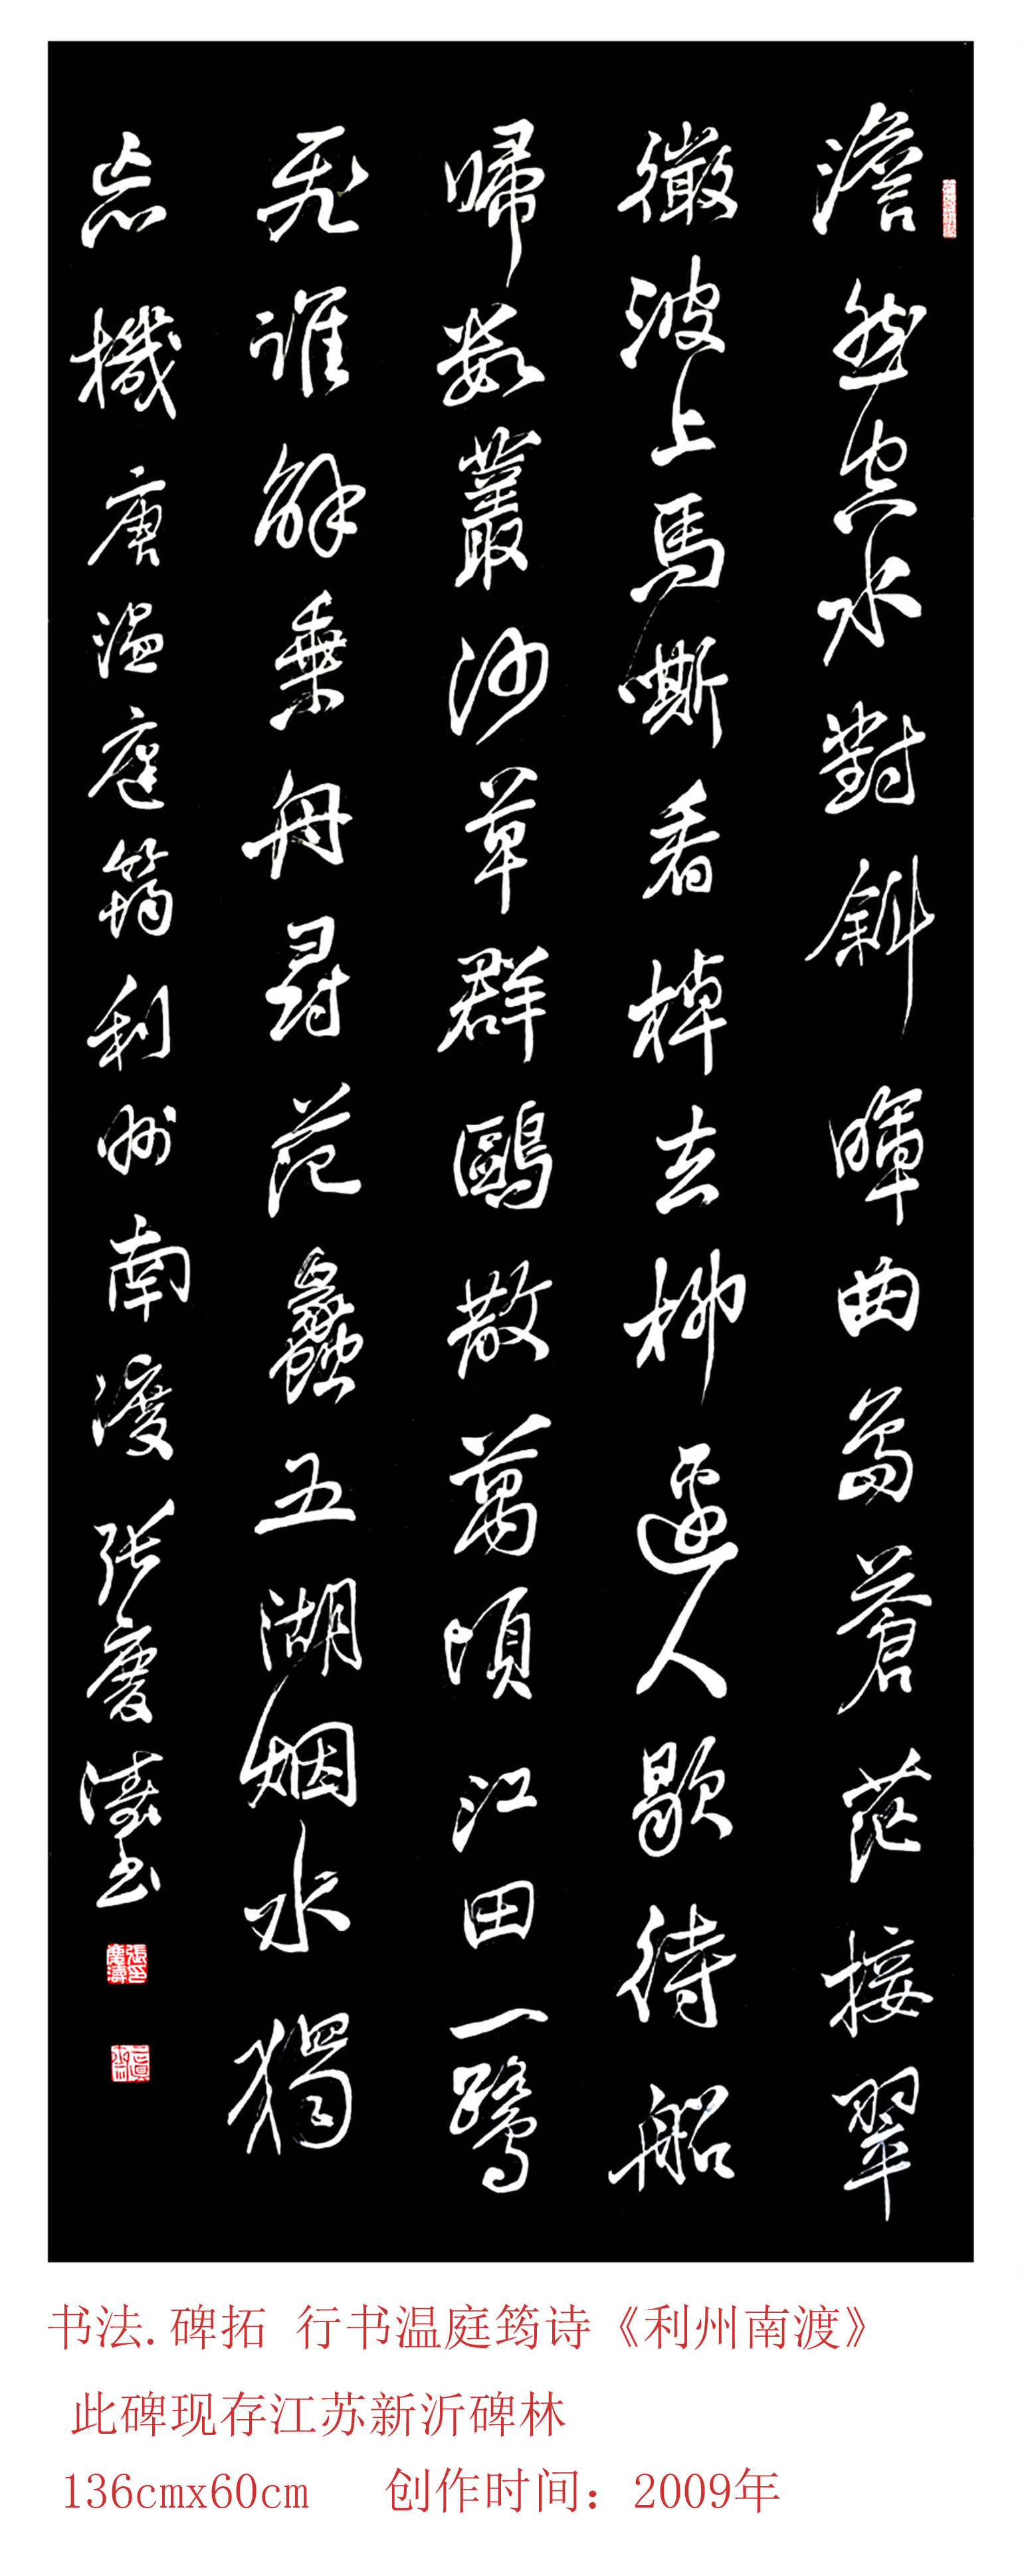 澹然空水對斜暉曲島蒼茫接翠
微波上馬嘶看棹去柳邊人歇待船
歸數叢沙草群鷗散萬頃江田一鷺
飛誰解乘舟尋范蠡五湖烟水獨
忘機 唐温庭筠利州南渡 張慶濤書
張慶濤印
书法.碑拓 行书温庭筠诗《利州南渡》
此碑现存江苏新沂碑林
136cmx60cm 创作时间：2009年